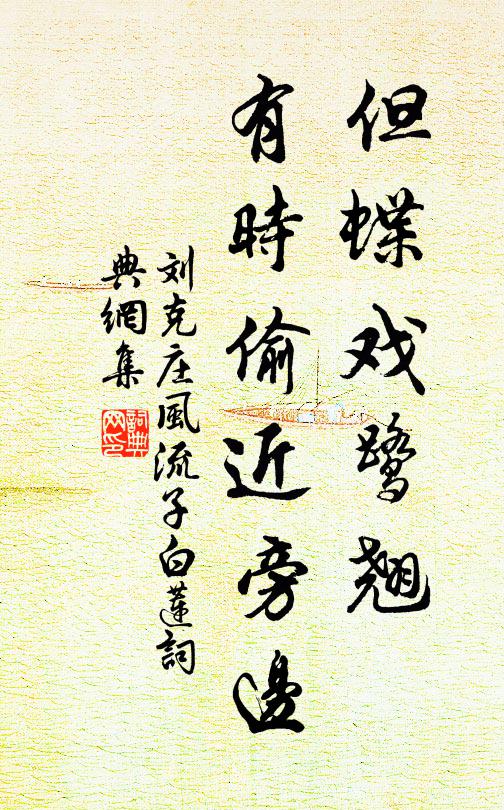 但蝶戏鹭翘
有時偷近旁邊
刘克庄風流子白蓮詞
典網集
詞典
网印